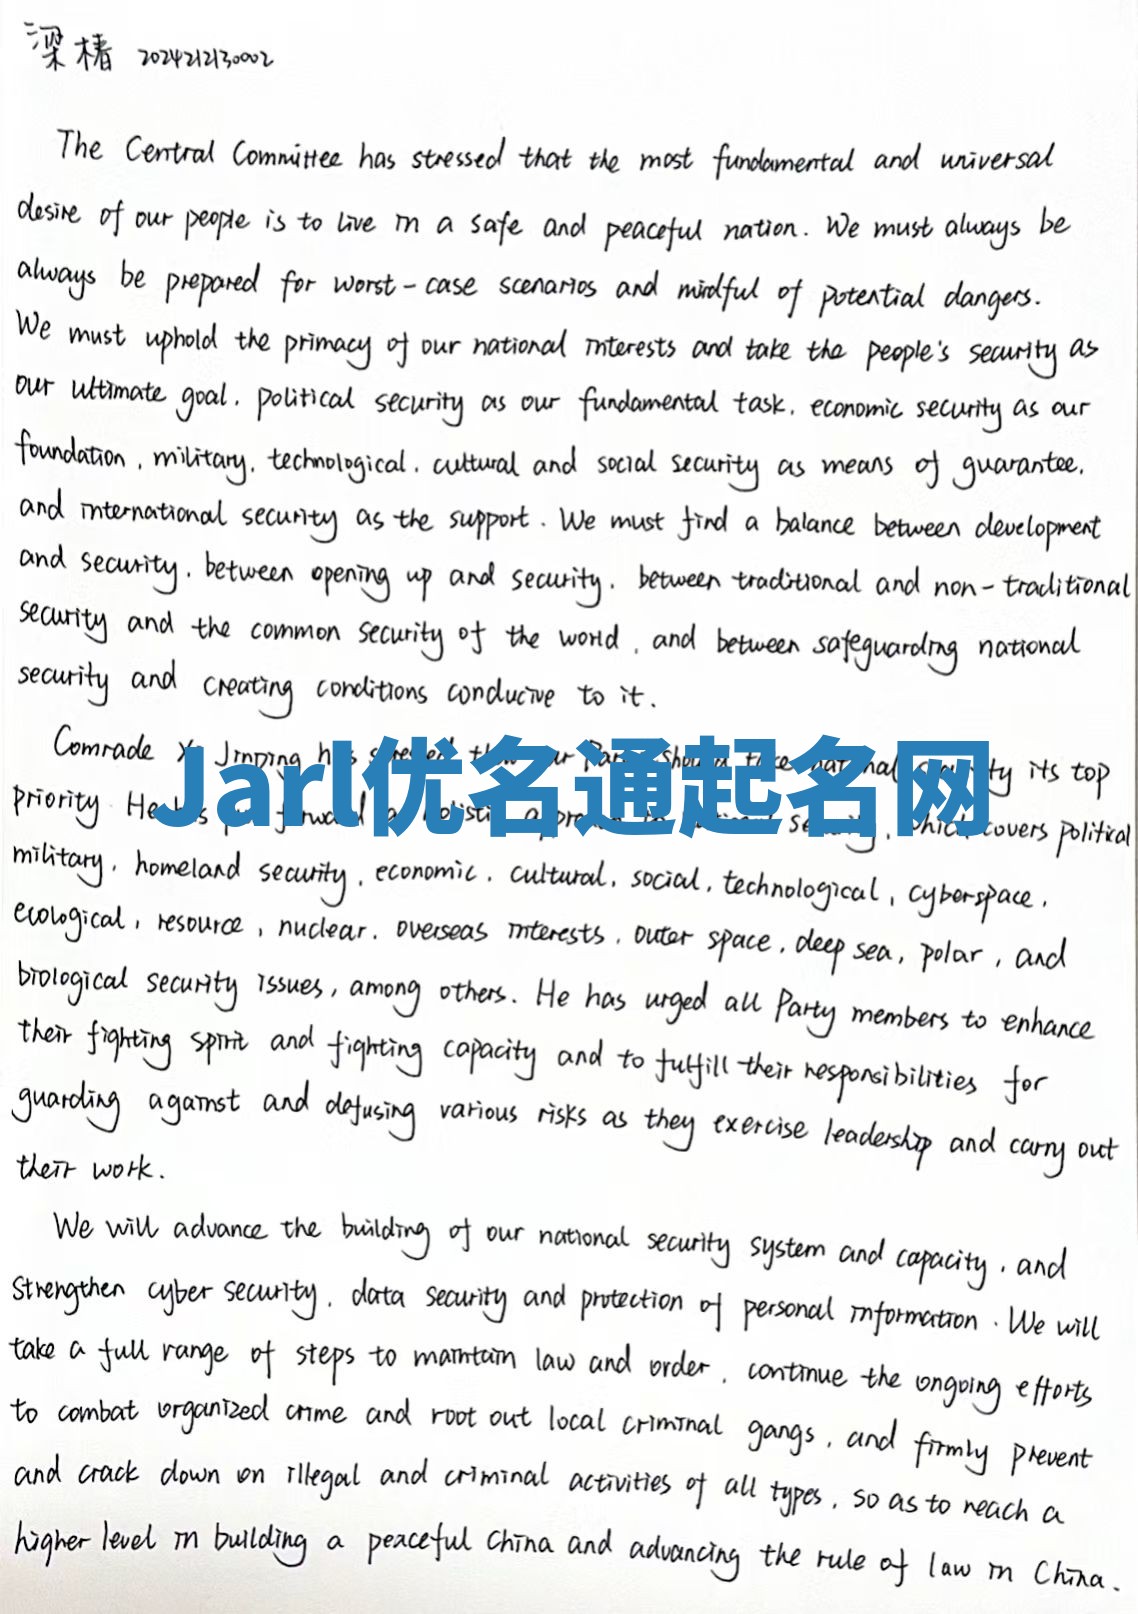 梁椿 2024212130002
The Central Committee has stressed that the most fundamental and universal
desire of our people is to live in a safe and peaceful nation. We must always be
always be prepared for worst-case scenarios and mindful of potential dangers.
We must uphold the primacy of our national interests and take the people's security as
our ultimate goal, political security as our fundamental task, economic security as our
foundation, military, technological, cultural and social security as means of guarantee,
and international security as the support. We must find a balance between development
and security, between opening up and security, between traditional and non-traditional
security and the common security of the world, and between safeguarding national
security and creating conditions conducive to it.
Comrade Xi Jinping has stressed that our Party should take national security its top
Jarl优名通起名网
priority. He has put forward a holistic approach to national security, which covers political
military, homeland security, economic, cultural, social, technological, cyberspace,
ecological, resource, nuclear, overseas interests, outer space, deep sea, polar, and
biological security issues, among others. He has urged all Party members to enhance
their fighting spirit and fighting capacity and to fulfill their responsibilities for
guarding against and defusing various risks as they exercise leadership and carry out
their work.
We will advance the building of our national security system and capacity, and
strengthen cyber security, data security and protection of personal information. We will
take a full range of steps to maintain law and order, continue the ongoing efforts
to combat organized crime and root out local criminal gangs, and firmly prevent
and crack down on illegal and criminal activities of all types, so as to reach a
higher level in building a peaceful China and advancing the rule of law in China.